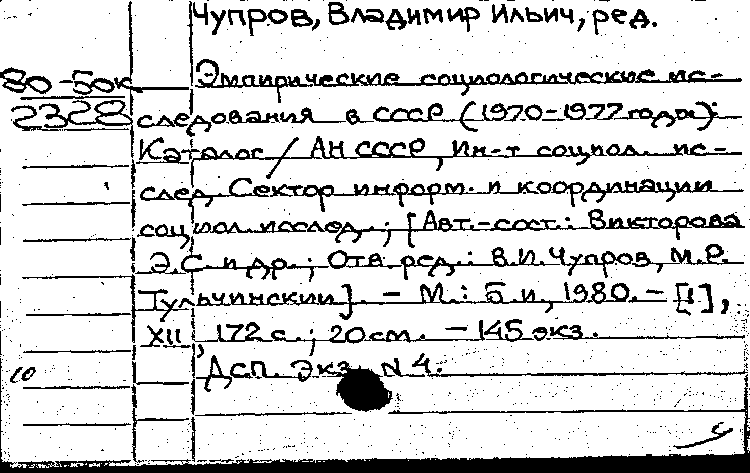 Чупров, Владимир Ильич, ред.
80-50к Эмпирические социологические ис-
2328 следования в СССР (1970-1977 годы):
Каталог / АН СССР, Ин-т социол. ис-
след. Сектор информ. и координации
социол. исслед.; [Авт.-сост.: Викторова
Э.С. и др.; Отв. ред.: В.И. Чупров, М.Р.
Тульчинский]. - М.: Б. и., 1980. - [1],
XII, 172 с.; 20 см. - 145 экз.
10 Дсп. Экз. N 4.